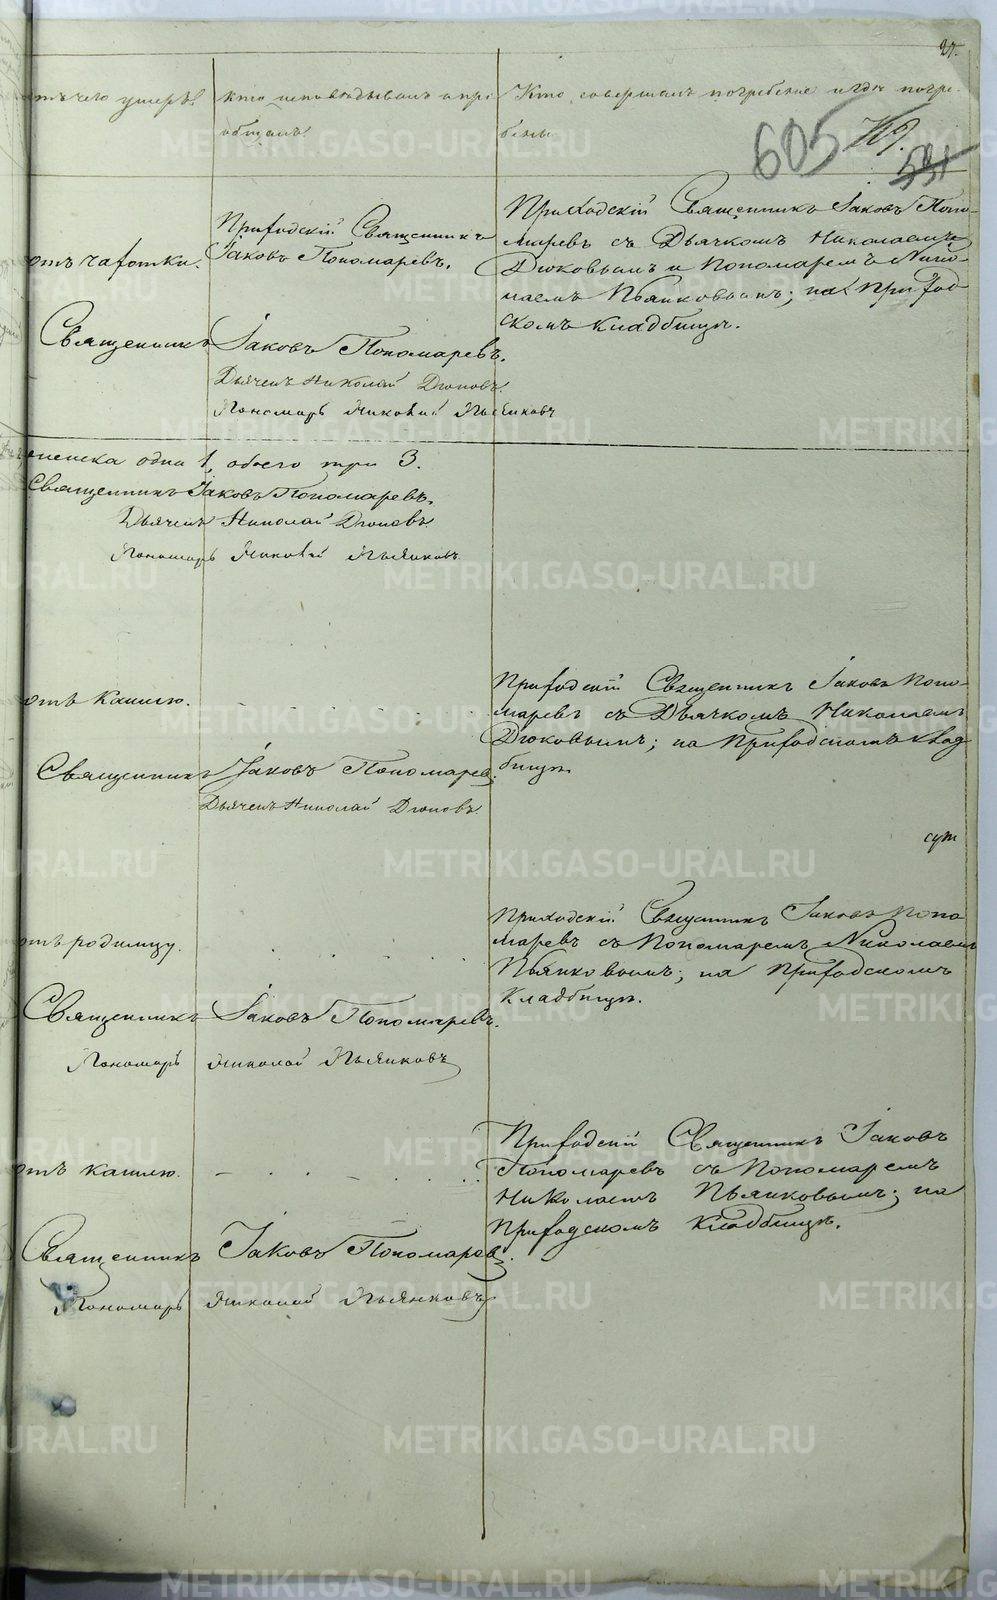 27.
отъ чего умеръ.
кто исповѣдывалъ и прі
общалъ.
Кто совершалъ погребеніе и гдѣ погре-
бены.
605
531
отъ чахотки.
Приходскій Священникъ
Іаковъ Пономаревъ.
Приходскій Священникъ Іаковъ Поно-
маревъ съ Дьячкомъ Николаемъ
Дюковымъ и Пономаремъ Нико-
лаемъ Пьянковымъ; на Приход
скомъ Кладбищѣ.
Священникъ Іаковъ Пономаревъ.
Дьячекъ Николай Дюковъ.
Пономарь Николай Пьянковъ
женска одна 1, обоего три 3.
Священникъ Іаковъ Пономаревъ.
Дьячекъ Николай Дюковъ
Пономарь Николай Пьянковъ
отъ кашлю.
Приходскій Священникъ Іаковъ Поно-
маревъ съ Дьячкомъ Николаемъ
Дюковымъ; на Приходскомъ клад
бищѣ
Священникъ Іаковъ Пономаревъ
Дьячекъ Николай Дюковъ.
отъ родимцу.
Приходскій Священникъ Іаковъ Поно
маревъ съ Пономаремъ Николаемъ
Пьянковымъ; на Приходскомъ
Кладбищѣ.
Священникъ Іаковъ Пономаревъ.
Пономарь Николай Пьянковъ
отъ кашлю.
Приходскій Священникъ Іаковъ
Пономаревъ съ Пономаремъ
Николаемъ Пьянковымъ; на
Приходскомъ Кладбищѣ.
Священникъ Іаковъ Пономаревъ.
Пономарь Николай Пьянковъ
METRIKI.GASO-URAL.RU